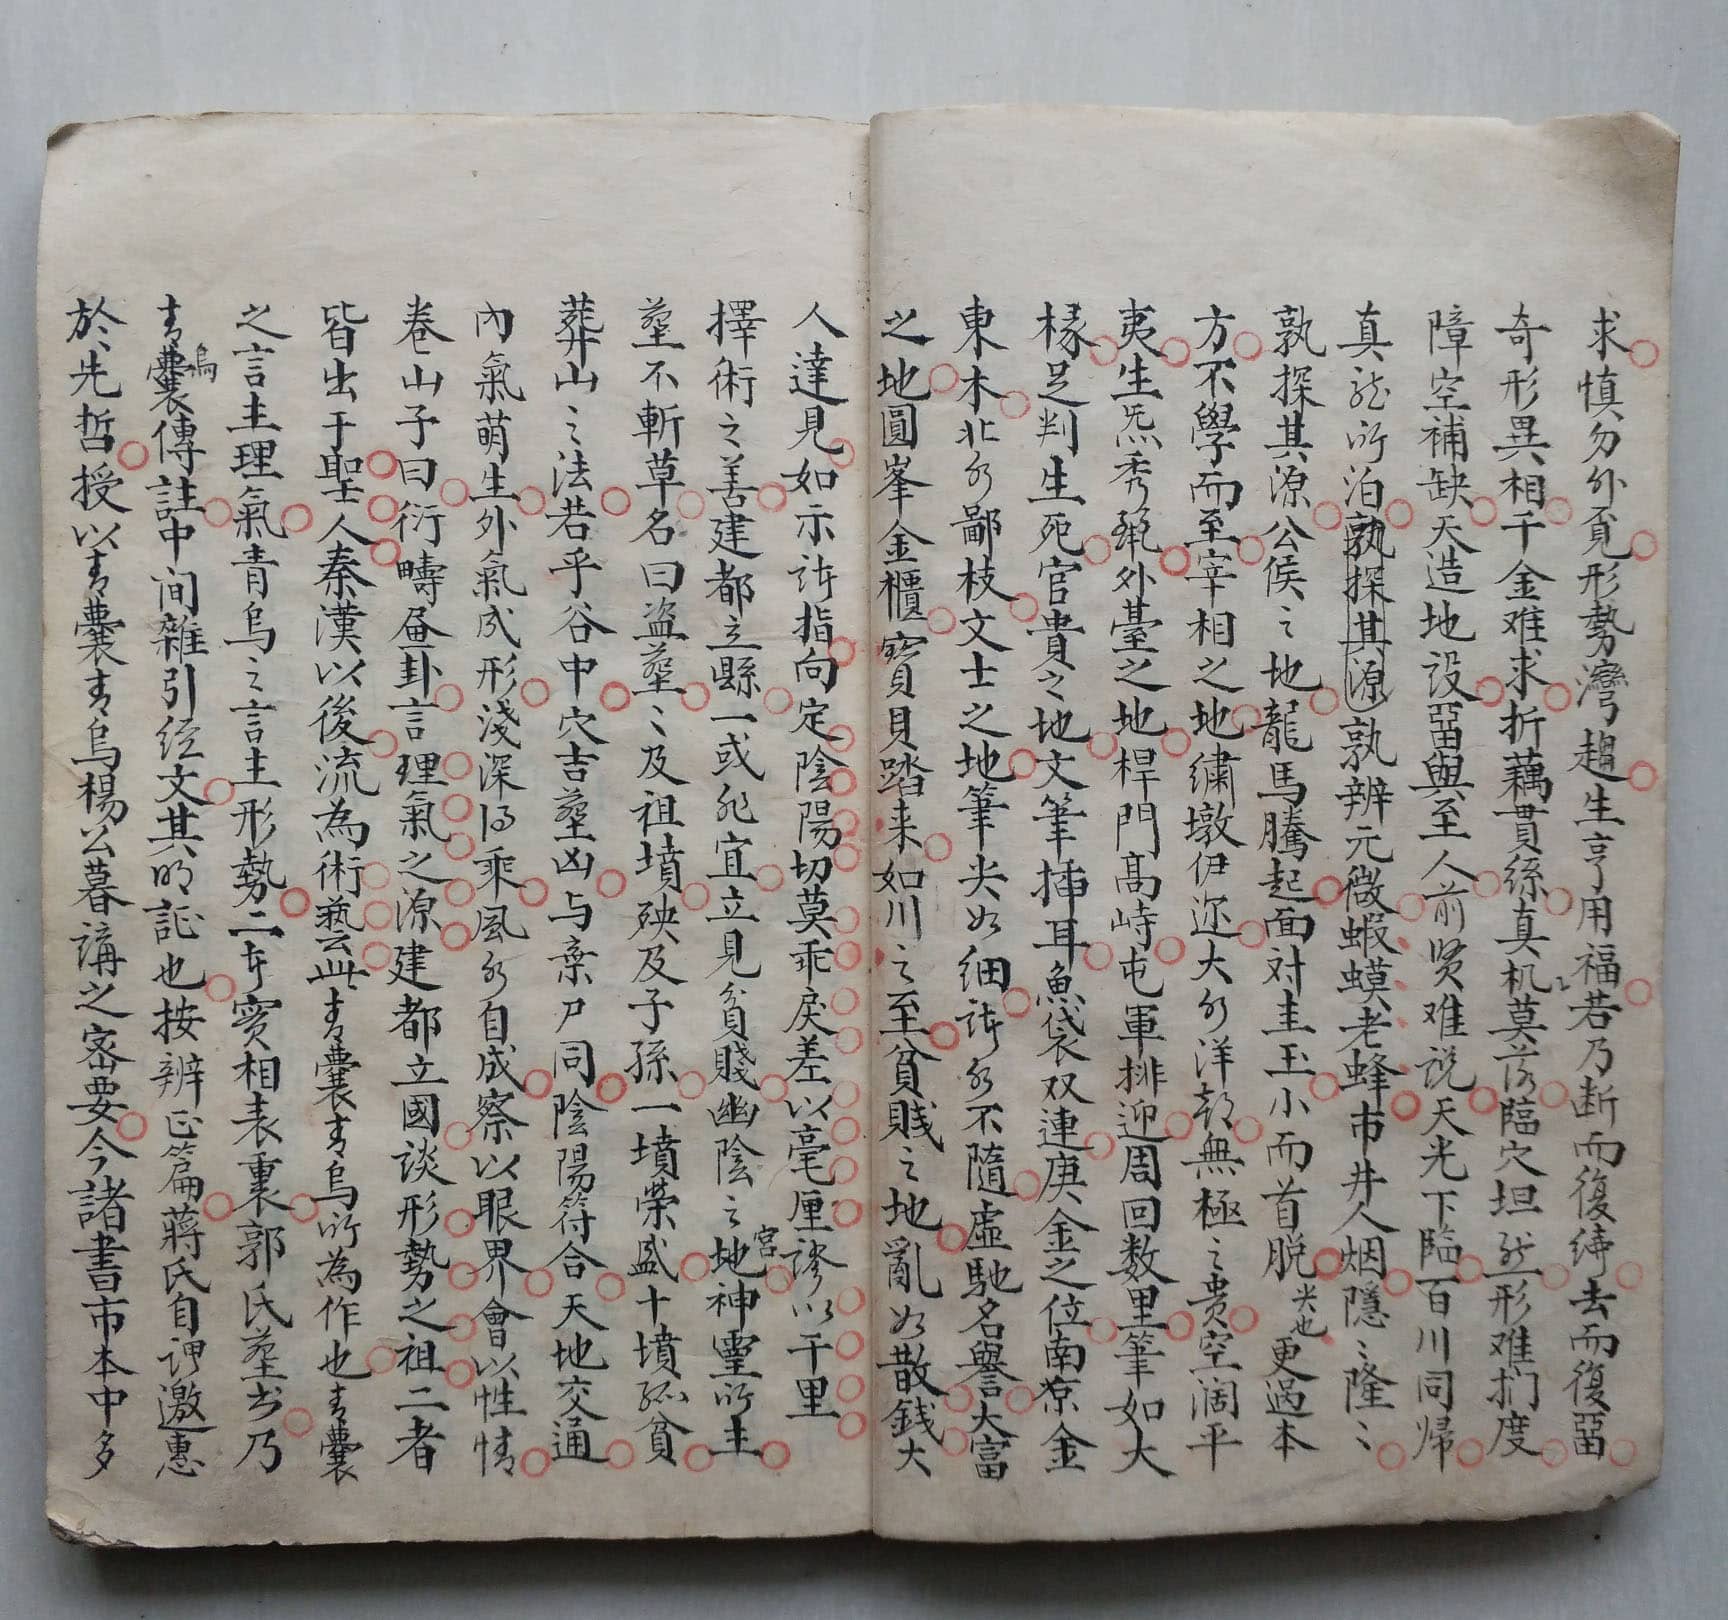 求慎勿外覓形勢灣趨生亨用福若乃断而復续去而復畱
奇形異相千金难求折藕貫絲真机莫落臨穴坦然形难捫度
障空補缺天造地设畱與至人前贤难说天光下臨百川同帰
真龙所泊孰探其源孰辨元微蝦蟆老蜂市井人烟隱〻隆〻
孰探其源公侯之地龍馬騰起面对圭玉小而首脱尖也更過本
方不學而至宰相之地繡墩伊迩大水洋朝無極之贵空阔平
夷生炁秀외臺之地桿門髙峙屯軍排迎周回数里筆如大
椽足判生死官貴之地文筆插耳魚袋双連庚金之位南京金
東木北水鄙枝文士之地筆尖如细诗水不隨虚馳名譽大富
之地圓峯金櫃寳貝踏来如川之至貧賤之地亂如散錢大
人達見如示諸指向定陰陽切莫乖戾差以毫厘謬以千里
擇術之善建都立縣一或非宜立見貧賤幽陰之地宮神靈所主
塟不斬草名曰盗塟〻及祖墳殃及子孫一墳荣盛十墳孤貧
葬山之法若乎谷中穴吉塟凶与棄尸同陰陽符合天地交通
內氣萌生外氣成形淺深得乘風水自成察以眼界會以性情
卷山子曰衍疇畫卦言理氣之源建都立國談形勢之祖二者
皆出于聖人秦漢以後流為術藝此青囊青烏所為作也青囊
之言主理氣青烏之言主形勢二者寔相表裏郭氏塟书乃
青囊烏傳註中间雜引经文其明証也按辨正篇蔣氏自谓邀惠
於先哲授以青囊青烏楊公暮講之密要今諸書市本中多